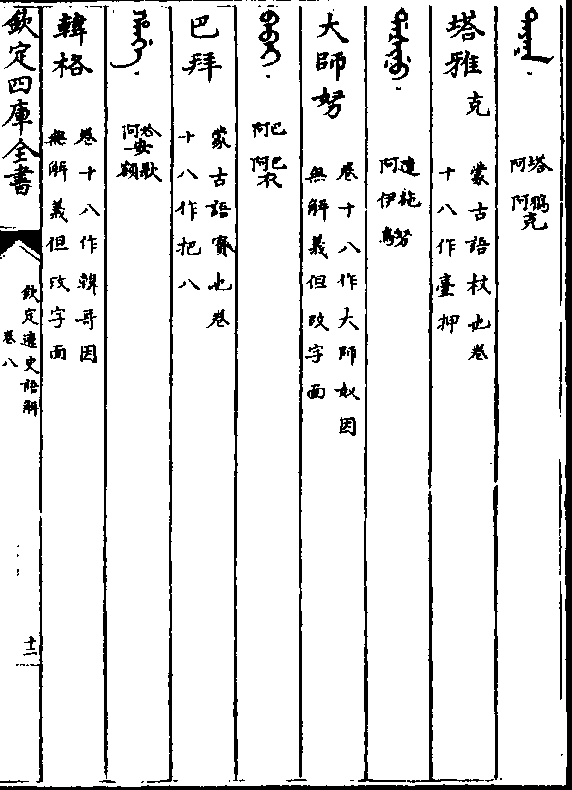 塔阿 鴉阿克
塔雅克 蒙古語杖也卷
十八作臺押
達阿 施伊 努烏
大師努 卷十八作大師奴因
無解義但改字面
巴阿 巴阿衣
巴拜 蒙古語寳也卷
十八作把八
哈阿安 歌額
韓格 卷十八作韓哥因
無解義但改字面
欽定四庫全書
欽定遼史語解
卷八
十二